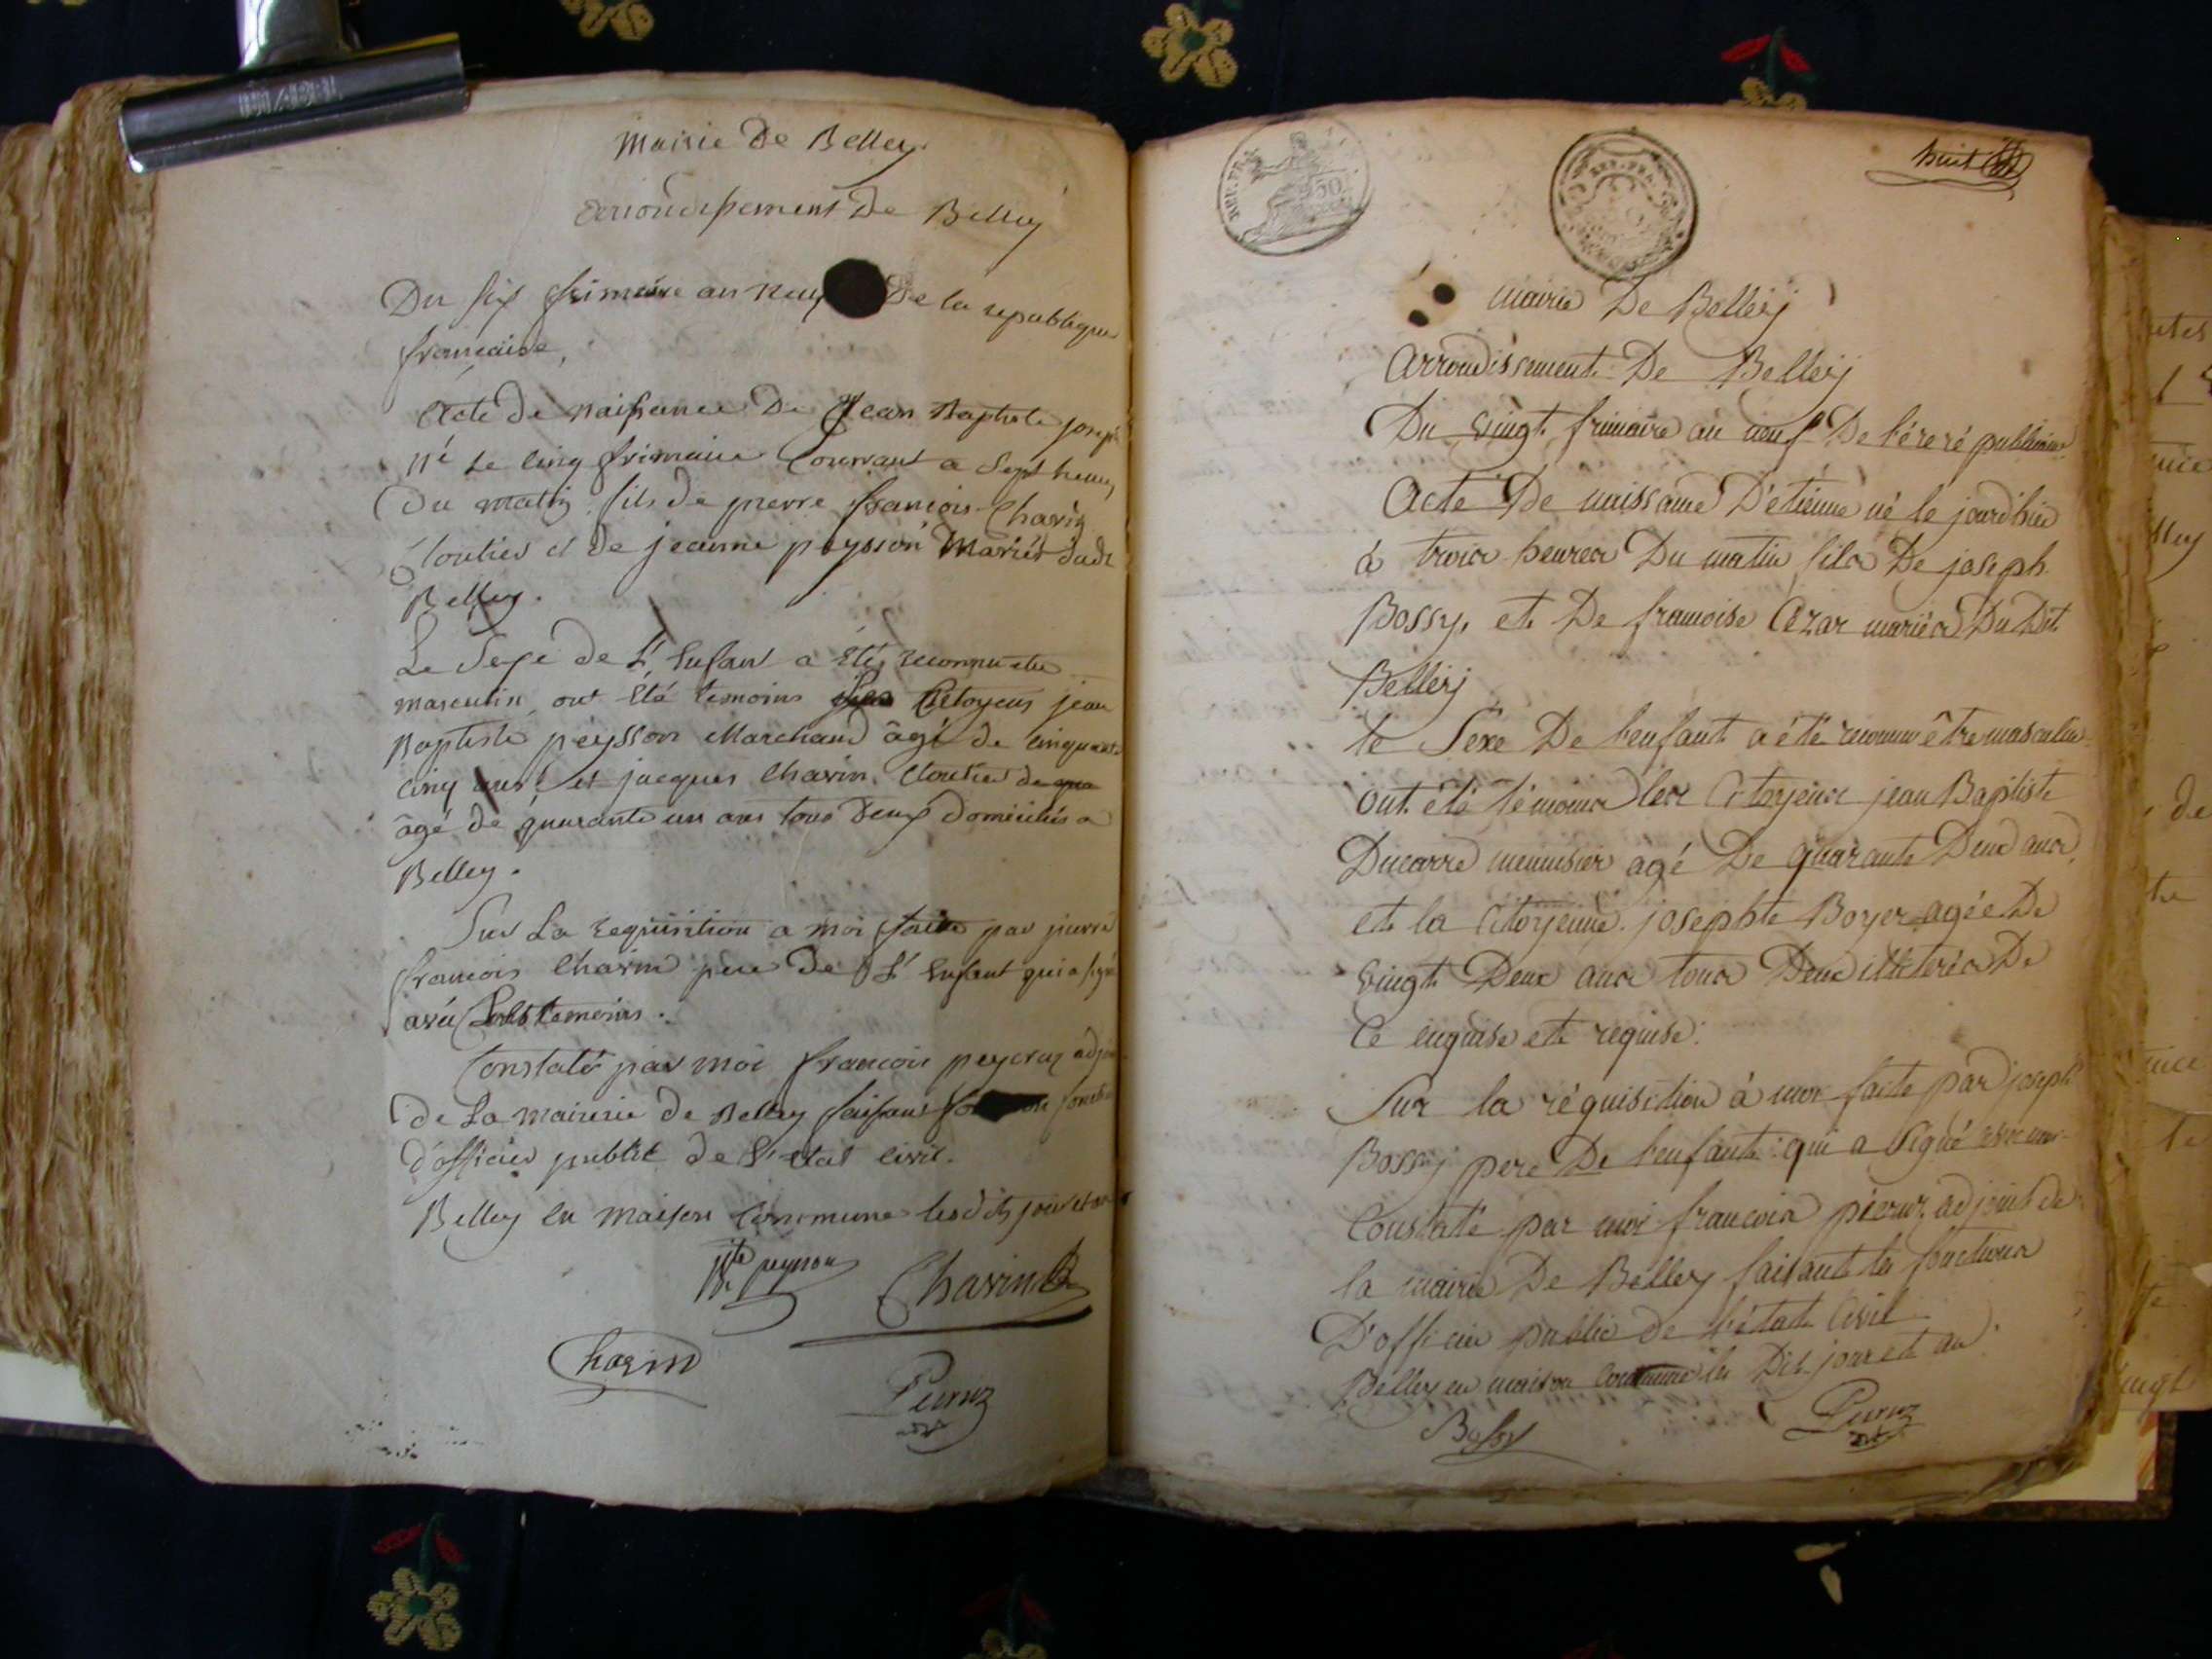 Mairie De Belley.
arrondissement De Belley
Du six frimaire an neuf De la republique
francaise,
Acte de naissance De Jean Baptiste joseph
né Le cinq frimaire Courrant a Sept heures
Du matin fils de pierre francois Chavin
Cloutier et De jeanne peysson Mariés dudt
Belley.
Le Sexe de L'Enfant a été reconnu etre
masculin, ont été temoins Les Citoyens jean
Baptiste peysson Marchand âgé de cinquante
cinq ans et jacques Chavin Cloutier de qua
âgé de quarante un ans tous Deux Domiciliés a
Belley.
Sur La requisition a moi faite par pierre
francois Chavin pere De L'Enfant qui a signé
avec Les temoins.
Constaté par moi francois peycruz adjoint
de La mairerie de Belley faisant fonction
d'officier public de L'etat civil.
Belley en maison Commune lesdits jour et an
Bte peysson
Chavin
Chavin
Picruz
REP. FRA.
50
REP. FRA.
huit
Mairie De Belleij
Arrondissement De Belleij
Du vingt frimaire an neuf De l'ére républicaine
Acte De naissance D'etienne né le jourdhui
à trois heures Du matin fils De joseph
Bossy, et De francoise Cézar mariés Du Dit
Belleij
le Sexe De l'enfant a été reconnu être masculin
ont été témoins les Citoyens jean Baptiste
Ducarre menuisier agé De quarante Deux ans,
et la Citoyenne josephte Boyer agée De
vingt Deux ans tous Deux illiterés De
Ce enquise et requise.
Sur la réquisition à moi faite par joseph
Bossij pere De l'enfant qui a Signé avec moi
Constaté par moi francois picruz adjoint de
la mairie De Belley faisant les fonctions
D'officier public de l'état Civil
Belley en maison Commune les Dit jour et an
Bossy
Picruz